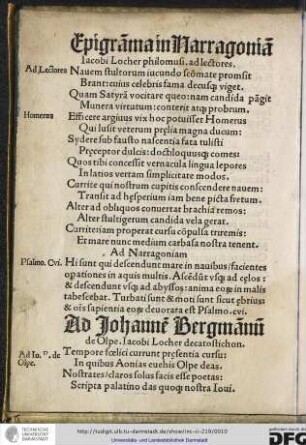 Epigrāma in Narragoniā
Iacobi Locher philomusi. ad lectores.
Ad Lectores
Nauem stultorum iucundo scōmate promsit
Brant: cuius celebris fama decusq; viget.
Quam Satyrā vocitare queo: nam candida pāgit
Munera virtutum: conterit atq; probrum.
Homerus
Efficere argiuus vix hoc potuisset Homerus
Qui lusit veterum prelia magna ducum:
Sydere sub fausto nascentia fata tulisti
Preceptor dulcis: dochloquusq; comes:
Quos tibi concessit vernacula lingua lepores
In latios vertam simplicitate modos.
Currite qui nostrum cupitis conscendere nauem:
Transit ad hesperium iam bene picta fretum.
Alter ad obliquos conuertat brachia remos:
Alter stultigerum candida vela gerat.
Curriteiam properat cursu cōpulsa triremis:
Et mare nunc medium carbasa nostra tenent.
Ad Narragoniam
Psalmo. Cvi.
Hi sunt qui descendunt mare in nauibus: facientes
opationes in aquis multis. Ascēdūt vsq; ad celos:
& descendunt vsq; ad abyssos: anima eoꝝ in malis
tabescebat. Turbati sunt & moti sunt sicut ebrius:
& oīs sapientia eoꝝ deuorata est Psalmo. cvi.
Ad Johannē Bergmānū
de Olpe. Iacobi Locher decatostichon.
Ad Io. B. de
Olpe.
Tempore foelici currunt presentia cursu:
In quibus Aonias euehis Olpe deas.
Nostrates/claros solus facis esse poetas:
Scripta palatino das quoq; nostra Ioui.
http://tudigit.ulb.tu-darmstadt.de/show/inc-ii-219/0010
Universitäts- und Landesbibliothek Darmstadt